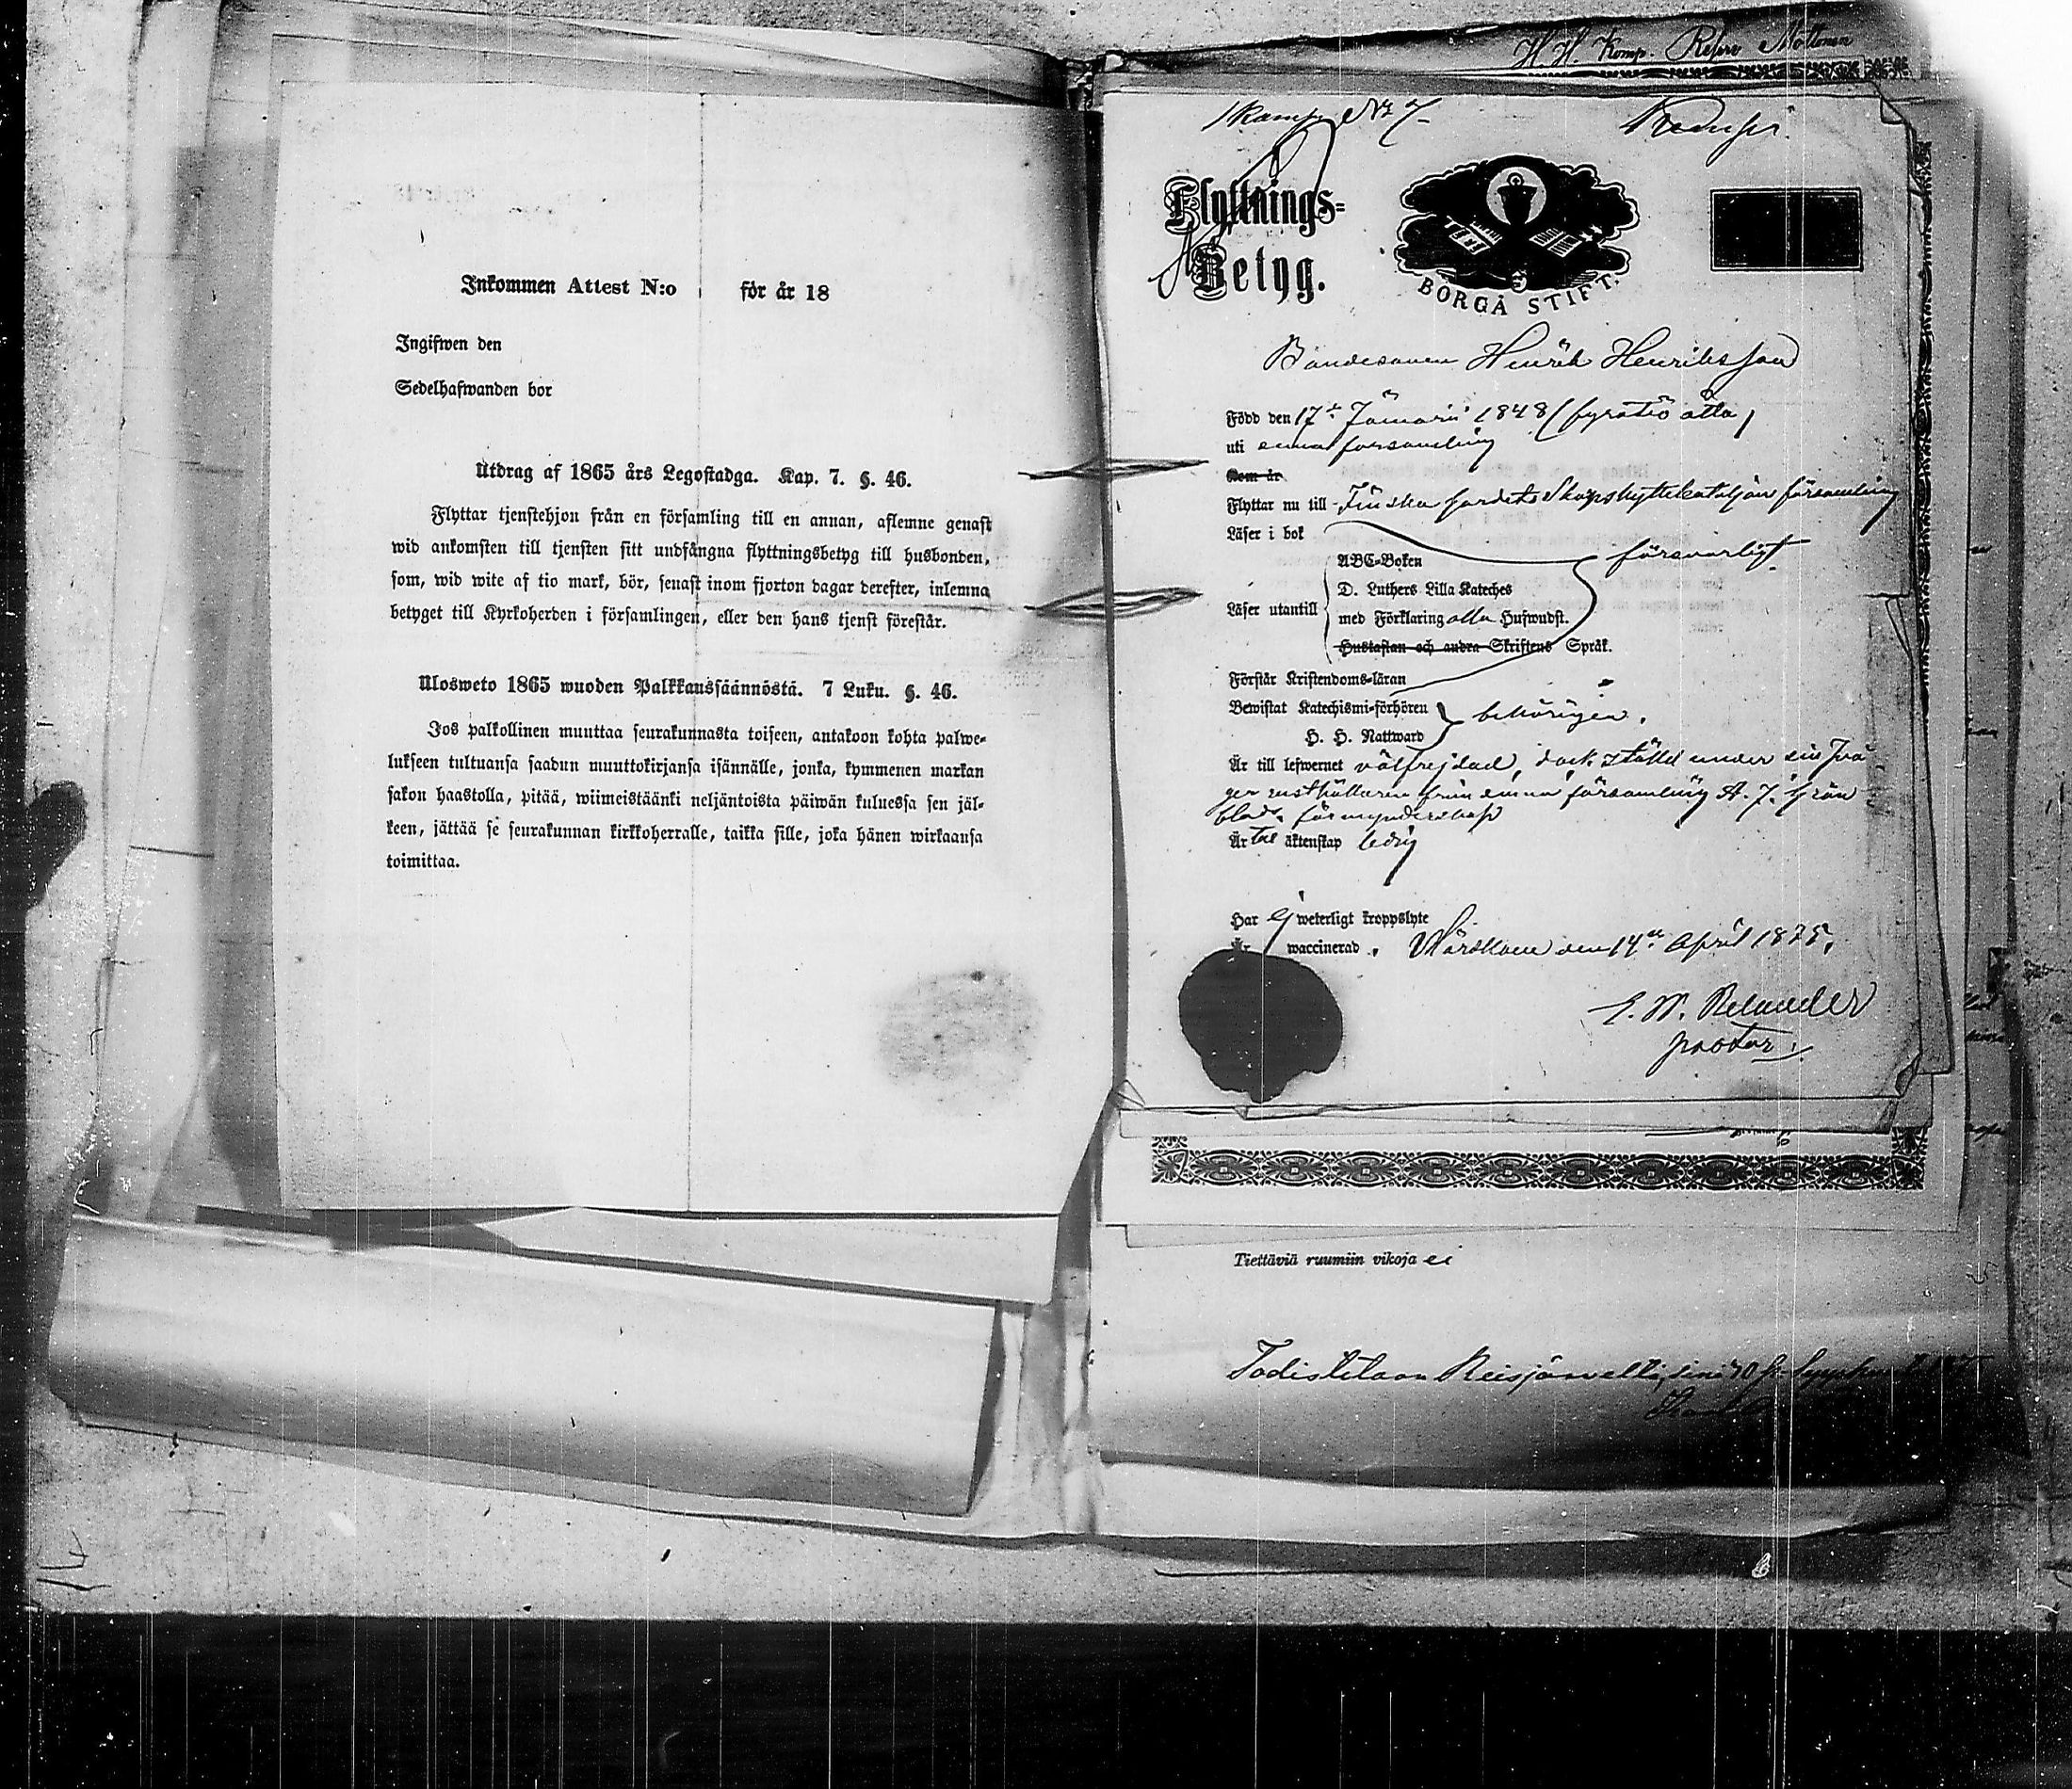 Inkommen Attest N:o för år 18
Ingifwen den
Sedelhafwanden bor
Utdrag af 1865 års Legostadga. Kap. 7. §. 46.
Flyttar tjenstehjon från en församling till en annan, aflemne genast
wid ankomsten till tjensten sitt undfångna flyttningsbetyg till husbonden,
som, wid wite af tio mark, bör, senast inom fjorton dagar derefter, inlemna
betyget till Kyrkoherden i församlingen, eller den hans tjenst förestår.
Ulosweto 1865 wuoden Palkkaussäännöstä. 7 Luku. §. 46.
Jos palkollinen muuttaa seurakunnasta toiseen, antakoon kohta palwe-
lukseen tultuansa saadun muuttokirjansa isännälle, jonka, kymmenen markan
sakon haastolla, pitää, wiimeistäänki neljäntoista päiwän kuluessa sen jäl-
keen, jättää se seurakunnan kirkkoherralle, taikka sille, joka hänen wirkaansa
toimittaa.
H. H. Komp. Reserv Möttönen
1 Komp. N:o 7
Flyttnings-
Betyg.
BORGÅ STIFT.
Bondesonen Henrik Henriksson
Född den 17de Januarii 1848 (fyratio åtta)
uti denna församling
Kom år
Flyttar nu till Finska Gardets Skarpskyttebataljons församling
Läser i bok
ABC-Boken försvarligt
D. Luthers Lilla Kateches
Läser utantill
med Förklaring alla Hufwudst.
Hustaflan och andra Skriftens Språk.
Förstår Kristendoms-läran
Bewistat Katechismi-förhören behörigen.
H. H. Nattward
Är till lefwernet välfrejdad, dock ställd under sin svå-
ger rusthållaren från denna församling A. J. Grön
blads förmynderskap
Är till äktenskap ledig
Har ej weterligt kroppslyte
Är waccinerad. den 14de April 1875.
E. W. Relander
pastor.
Tiettäviä ruumiin vikoja ei
Todistetaan Reisjärvellä,